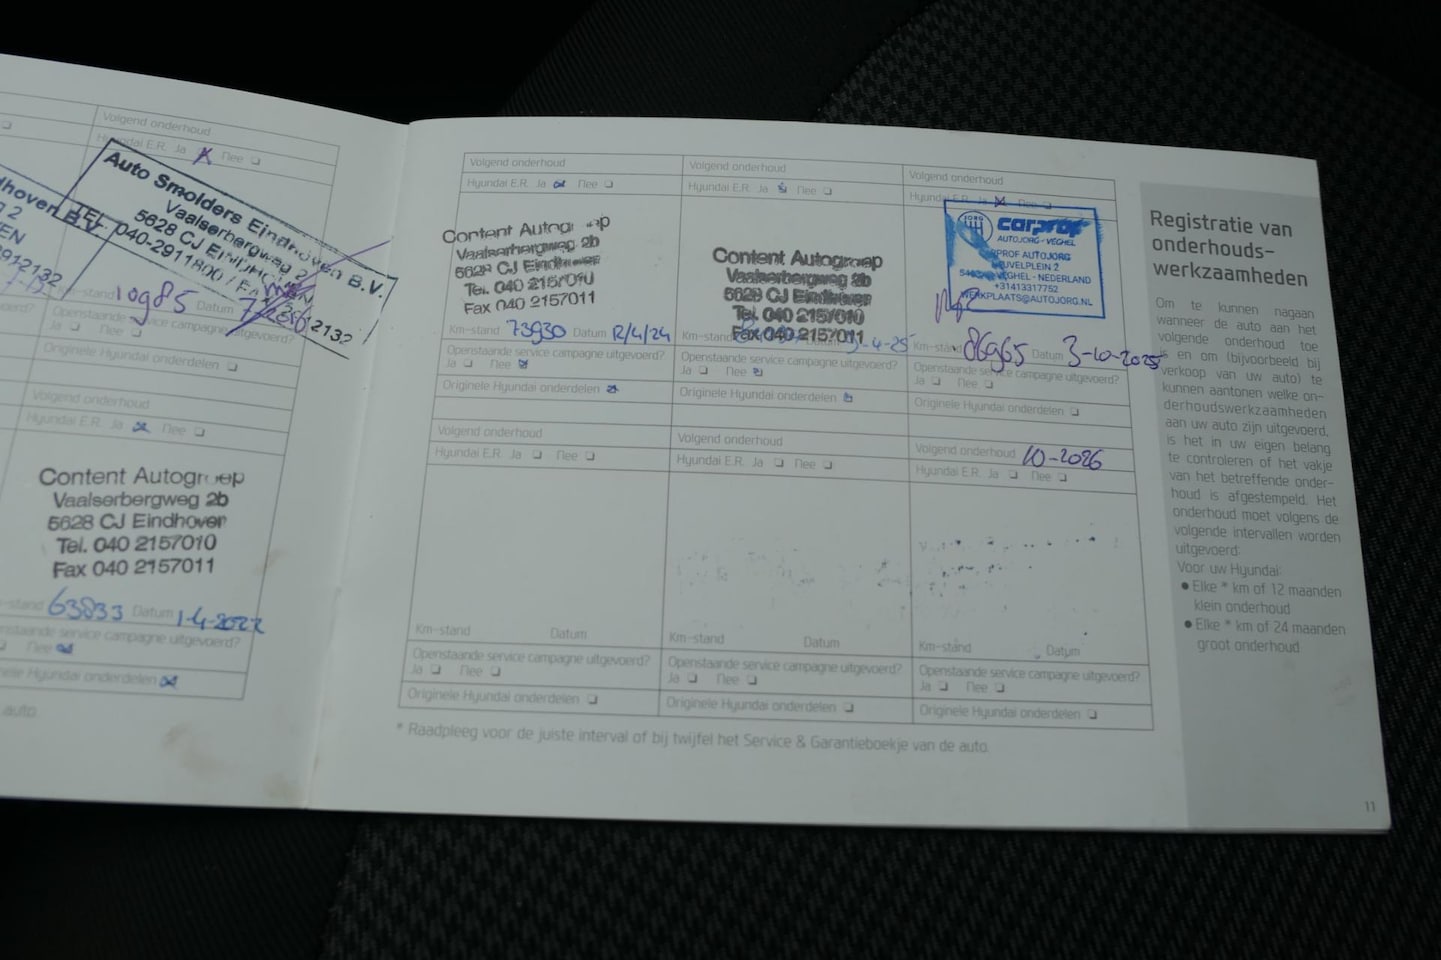 Volgend onderhoud
Hyundai E.R. Ja Nee
dhoven B.V.
2
EN
2912132
Auto Smolders Eindhoven B.V.
Vaalserbergweg 2
5628 CJ EINDHOVEN
TEL. 040-2911800 / FAX 2912132
Km-stand 10985 Datum
Openstaande service campagne uitgevoerd?
Ja Nee
Originele Hyundai onderdelen
Volgend onderhoud
Hyundai E.R. Ja Nee
Content Autogroep
Vaalserbergweg 2b
5628 CJ Eindhoven
Tel. 040 2157010
Fax 040 2157011
Km-stand 63833 Datum 1-4-2022
Openstaande service campagne uitgevoerd?
Nee
Originele Hyundai onderdelen
auto
Volgend onderhoud
Hyundai E.R. Ja Nee
Content Autogroep
Vaalserbergweg 2b
5628 CJ Eindhoven
Tel. 040 2157010
Fax 040 2157011
Km-stand 73930 Datum 12/4/24
Openstaande service campagne uitgevoerd?
Ja Nee
Originele Hyundai onderdelen
Volgend onderhoud
Hyundai E.R. Ja Nee
Content Autogroep
Vaalserbergweg 2b
5628 CJ Eindhoven
Tel. 040 2157010
Fax 040 2157011
Km-stand Datum 3-4-25
Openstaande service campagne uitgevoerd?
Ja Nee
Originele Hyundai onderdelen
Volgend onderhoud
Hyundai E.R. Ja Nee
JORG
carprof
AUTOJORG - VEGHEL
CARPROF AUTOJORG
HEUVELPLEIN 2
VEGHEL - NEDERLAND
+31413317752
WERKPLAATS@AUTOJORG.NL
Km-stand 86965 Datum 3-10-2025
Openstaande service campagne uitgevoerd?
Ja Nee
Originele Hyundai onderdelen
Volgend onderhoud
Hyundai E.R. Ja Nee
Km-stand Datum
Openstaande service campagne uitgevoerd?
Ja Nee
Originele Hyundai onderdelen
Volgend onderhoud
Hyundai E.R. Ja Nee
Km-stand Datum
Openstaande service campagne uitgevoerd?
Ja Nee
Originele Hyundai onderdelen
Volgend onderhoud 10-2026
Hyundai E.R. Ja Nee
Km-stand Datum
Openstaande service campagne uitgevoerd?
Ja Nee
Originele Hyundai onderdelen
* Raadpleeg voor de juiste interval of bij twijfel het Service & Garantieboekje van de auto.
Registratie van
onderhouds-
werkzaamheden
Om te kunnen nagaan
wanneer de auto aan het
volgende onderhoud toe
is en om (bijvoorbeeld bij
verkoop van uw auto) te
kunnen aantonen welke on-
derhoudswerkzaamheden
aan uw auto zijn uitgevoerd,
is het in uw eigen belang
te controleren of het vakje
van het betreffende onder-
houd is afgestempeld. Het
onderhoud moet volgens de
volgende intervallen worden
uitgevoerd:
Voor uw Hyundai:
• Elke * km of 12 maanden
klein onderhoud
• Elke * km of 24 maanden
groot onderhoud
11